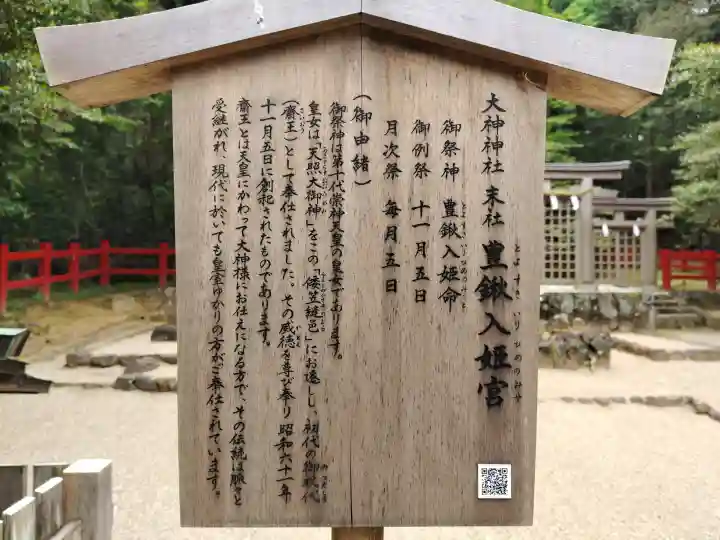 大神神社 末社 豊鍬入姫宮
とよすきいりひめのみや
御祭神 豊鍬入姫命
とよすきいりひめのみこと
御例祭 十一月五日
月次祭 毎月五日
(御由緒)
御祭神は第十代崇神天皇の皇女であります。
皇女は「天照大御神」をこの「倭笠縫邑」にお遷しし、初代の御杖代
(齋王)として奉仕されました。その威徳を尊び奉り 昭和六十一年
十一月五日に創祀されたものであります。
齋王とは天皇にかわって大神様にお仕えになる方で、その伝統は脈々と
受継がれ、現代に於いても皇室ゆかりの方がご奉仕されています。